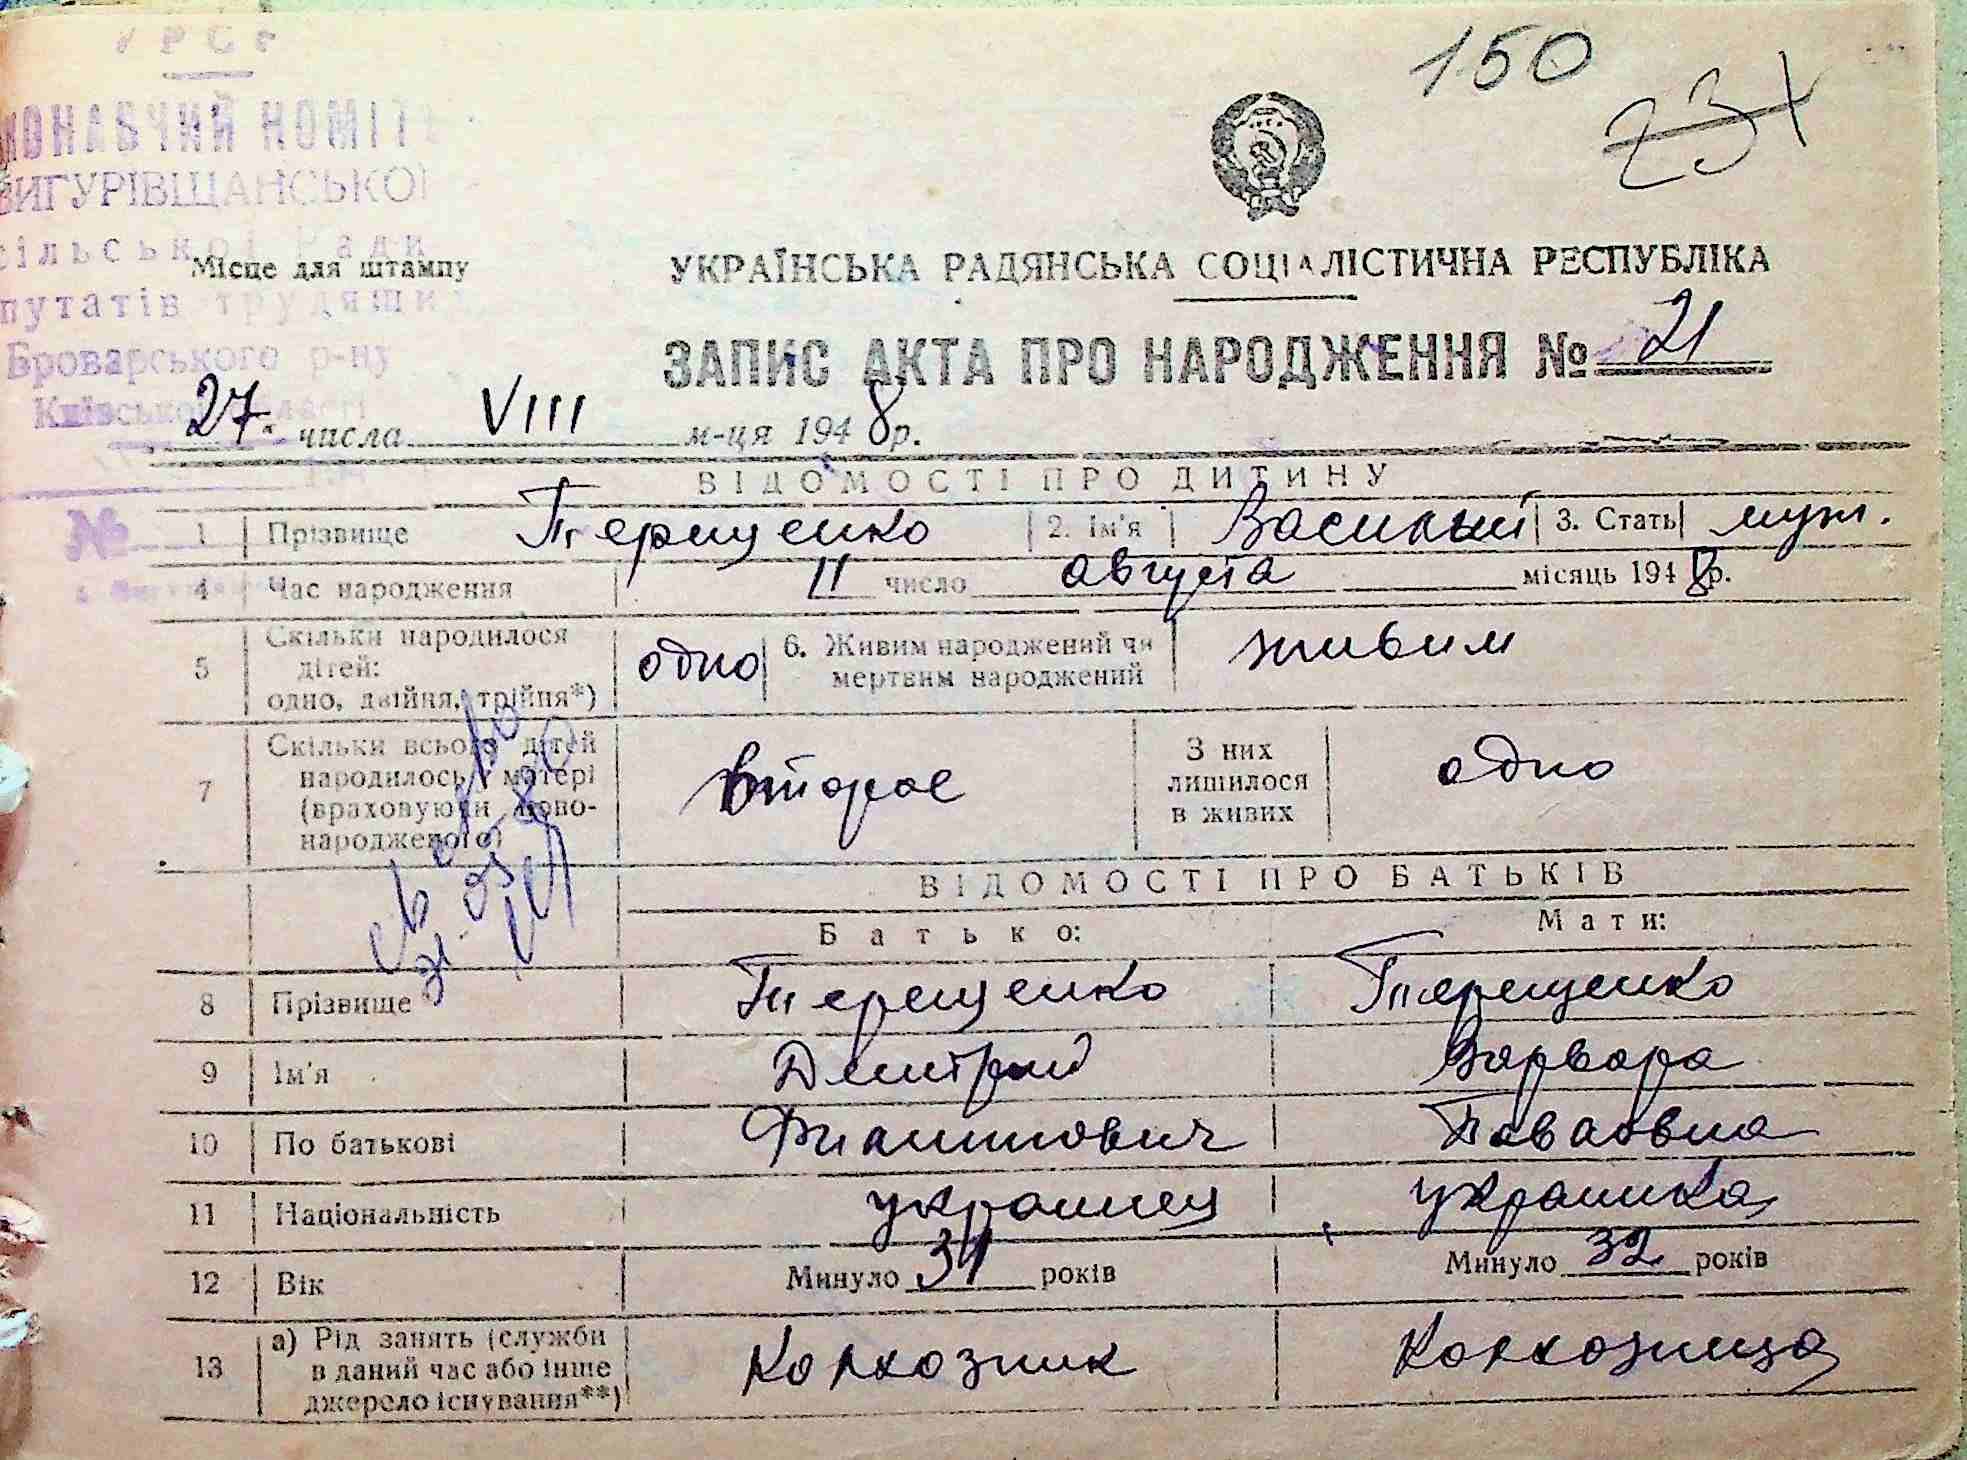 УРСР
150
231
ВИКОНАВЧИЙ КОМІТЕТ
ВИГУРІВЩАНСЬКОЇ
сільської Ради
депутатів трудящих
Броварського р-ну
Київської області
Місце для штампу
УКРАЇНСЬКА РАДЯНСЬКА СОЦІАЛІСТИЧНА РЕСПУБЛІКА
ЗАПИС АКТА ПРО НАРОДЖЕННЯ № 21
27 числа VIII м-ця 1948 р.
ВІДОМОСТІ ПРО ДИТИНУ
№
1 Прізвище Терещенко 2. Ім'я Василий 3. Стать муж.
4 Час народження 11 число августа місяць 1948 р.
5 Скільки народилося дітей: одно, двійня, трійня*) одно 6. Живим народжений чи мертвим народжений живим
7 Скільки всього дітей народилось у матері (враховуючи новонародженого) второе З них лишилося в живих одно
ВІДОМОСТІ ПРО БАТЬКІВ
Батько: Мати:
8 Прізвище Терещенко Терещенко
9 Ім'я Дмитрий Варвара
10 По батькові Филиппович Павловна
11 Національність украинец украинка
12 Вік Минуло 31 років Минуло 32 років
13 а) Рід занять (служби в даний час або інше джерело існування**) Колхозник Колхозница